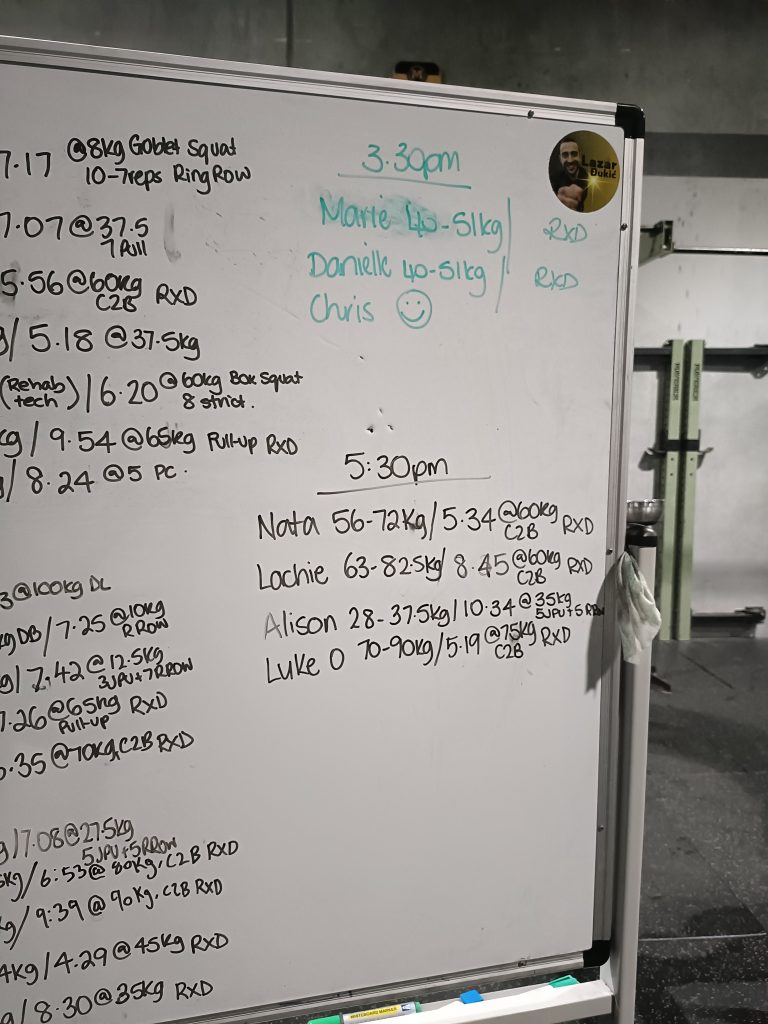 7.17 @8kg Goblet Squat
10-7reps Ring Row
7.07@37.5
7 Pull
5.56@60kg
C2B RXD
g/ 5.18 @37.5kg
(Rehab tech)/6.20@60kg Box Squat
8 strict.
kg / 9.54@65kg Pull-up RXD
/ 8.24 @5 PC.
3@100kg DL
kg DB/7.25@10kg
R.ROW
g/ 7.42@12.5kg
3JPU+7RROW
7.26@65kg RXD
Pull-up
.35@70kg,C2B RXD
g/7.08@27.5kg
5JPU+5RROW
5kg/6:53@80kg, C2B RXD
g/9:39@90kg, C2B RXD
4kg/4.29@45kg RXD
g/8.30@35kg RXD
3.30pm
Marie 40-51kg/ RXD
Danielle 40-51kg/ RXD
Chris
5:30pm
Nata 56-72kg/5.34@60kg
C2B RXD
Lochie 63-82.5kg/8.45@60kg
C2B RXD
Alison 28-37.5kg/10.34@35kg
5JPU+5 RRow
Luke O 70-90kg/5.19@75kg
C2B RXD
Lazar
Đukić
WHITEBOARD MARKER